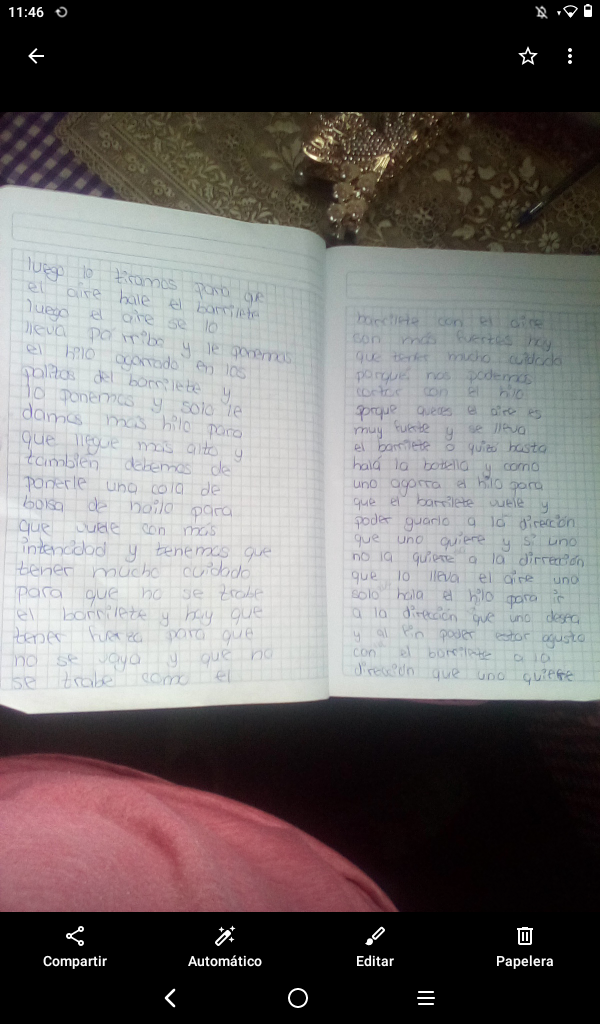 11:46
luego lo tiramos para que
el aire hale el barrilete
luego el aire se lo
lleva pa rriba y le ponemos
el hilo agarrado en los
palitos del barrilete y
lo ponemos y solo le
damos más hilo para
que llegue más alto y
también debemos de
ponerle una cola de
bolsa de nailo para
que vuele con más
intencidad y tenemos que
tener mucho cuidado
para que no se trabe
el barrilete y hay que
tener fuerza para que
no se vaya y que no
se trabe como el
barrilete con el aire
son más fuertes hay
que tener mucho cuidado
porque nos podemos
cortar con el hilo
porque aveces el aire es
muy fuerte y se lleva
el barrilete o quiza hasta
halá la botella y como
uno agarra el hilo para
que el barrilete vuele y
poder guiarlo a la dirección
que uno quiere y si uno
no la quiere a la dirreción
que lo lleva el aire uno
solo hala el hilo para ir
a la dirección que uno desea
y al fin poder estar agusto
con el barrilete a la
dirección que uno quiere
Compartir
Automático
Editar
Papelera